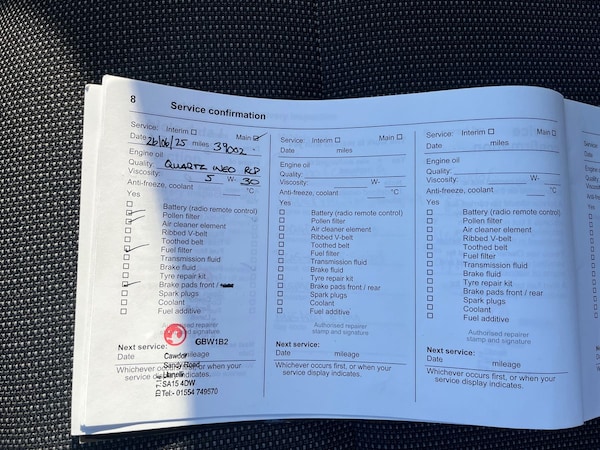 8 Service confirmation
Service: Interim ☐ Main ☑
Date 26/06/25 miles 39002
Engine oil
Quality: QUARTZ INEO RCP
Viscosity: 5 W- 30
Anti-freeze, coolant °C
Yes
Battery (radio remote control)
Pollen filter
Air cleaner element
Ribbed V-belt
Toothed belt
Fuel filter
Transmission fluid
Brake fluid
Tyre repair kit
Brake pads front /
Spark plugs
Coolant
Fuel additive
Authorised repairer
stamp and signature
GBW1B2
Next service:
Date mileage
Cawdor
Sandy Road
Llanelli
SA15 4DW
Tel:- 01554 749570
Whichever occurs first, or when your
service display indicates.
Service: Interim ☐ Main ☐
Date miles
Engine oil
Quality:
Viscosity: W-
Anti-freeze, coolant °C
Yes
Battery (radio remote control)
Pollen filter
Air cleaner element
Ribbed V-belt
Toothed belt
Fuel filter
Transmission fluid
Brake fluid
Tyre repair kit
Brake pads front / rear
Spark plugs
Coolant
Fuel additive
Authorised repairer
stamp and signature
Next service:
Date mileage
Whichever occurs first, or when your
service display indicates.
Service: Interim ☐ Main ☐
Date miles
Engine oil
Quality:
Viscosity: W-
Anti-freeze, coolant °C
Yes
Battery (radio remote control)
Pollen filter
Air cleaner element
Ribbed V-belt
Toothed belt
Fuel filter
Transmission fluid
Brake fluid
Tyre repair kit
Brake pads front / rear
Spark plugs
Coolant
Fuel additive
Authorised repairer
stamp and signature
Next service:
Date mileage
Whichever occurs first, or when your
service display indicates.